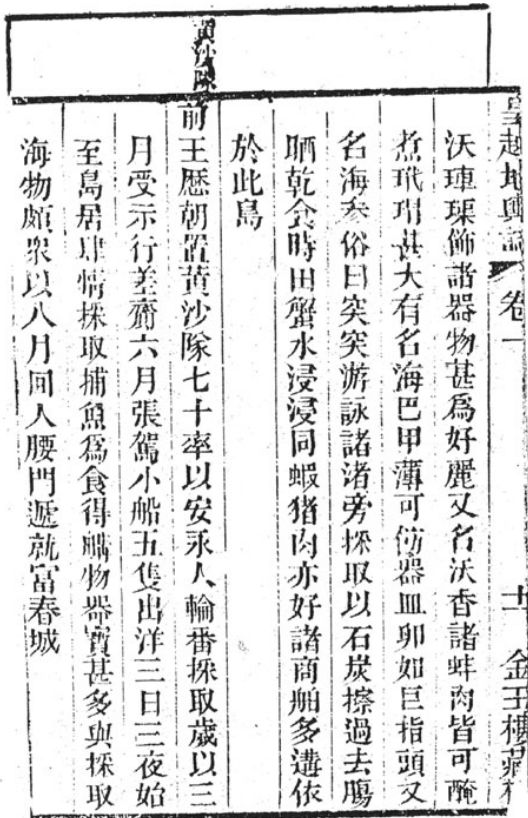 皇越地輿誌 卷一 十一 金玉樓藏板
沃琛飾諸器物甚爲好麗又名沃香諸蚌肉皆可醃
煮玳瑁甚大有名海巴甲薄可飭器皿卵如巨指頭又
名海參俗曰突突游詠諸渚旁採取以石炭擦過去腸
晒乾食時田蟹水浸浸同蝦猪肉亦好諸商舶多遘依
於此島
黃沙隊
前王歷朝置黃沙隊七十率以安永人輪番採取歲以三
月受示行差齎六月張駕小船五隻出洋三日三夜始
至島居肆情採取捕魚爲食得艚物器寶甚多與採取
海物頗衆以八月回人腰門遞就富春城